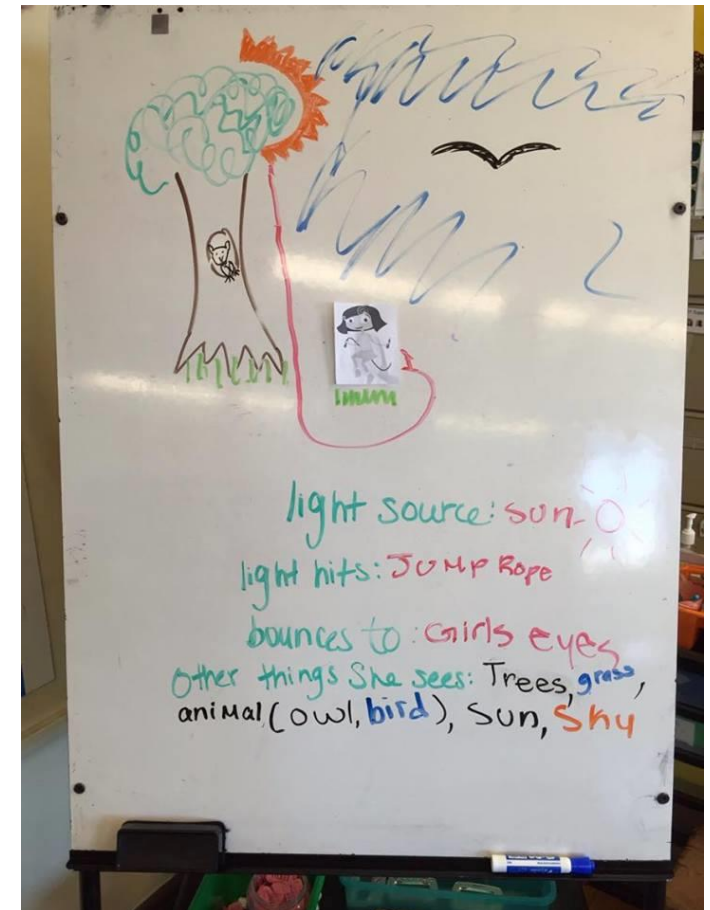 light source: sun-
light hits: JUMP Rope
bounces to: Girls eyes
Other things She sees: Trees, grass,
animal (owl, bird), Sun, Sky